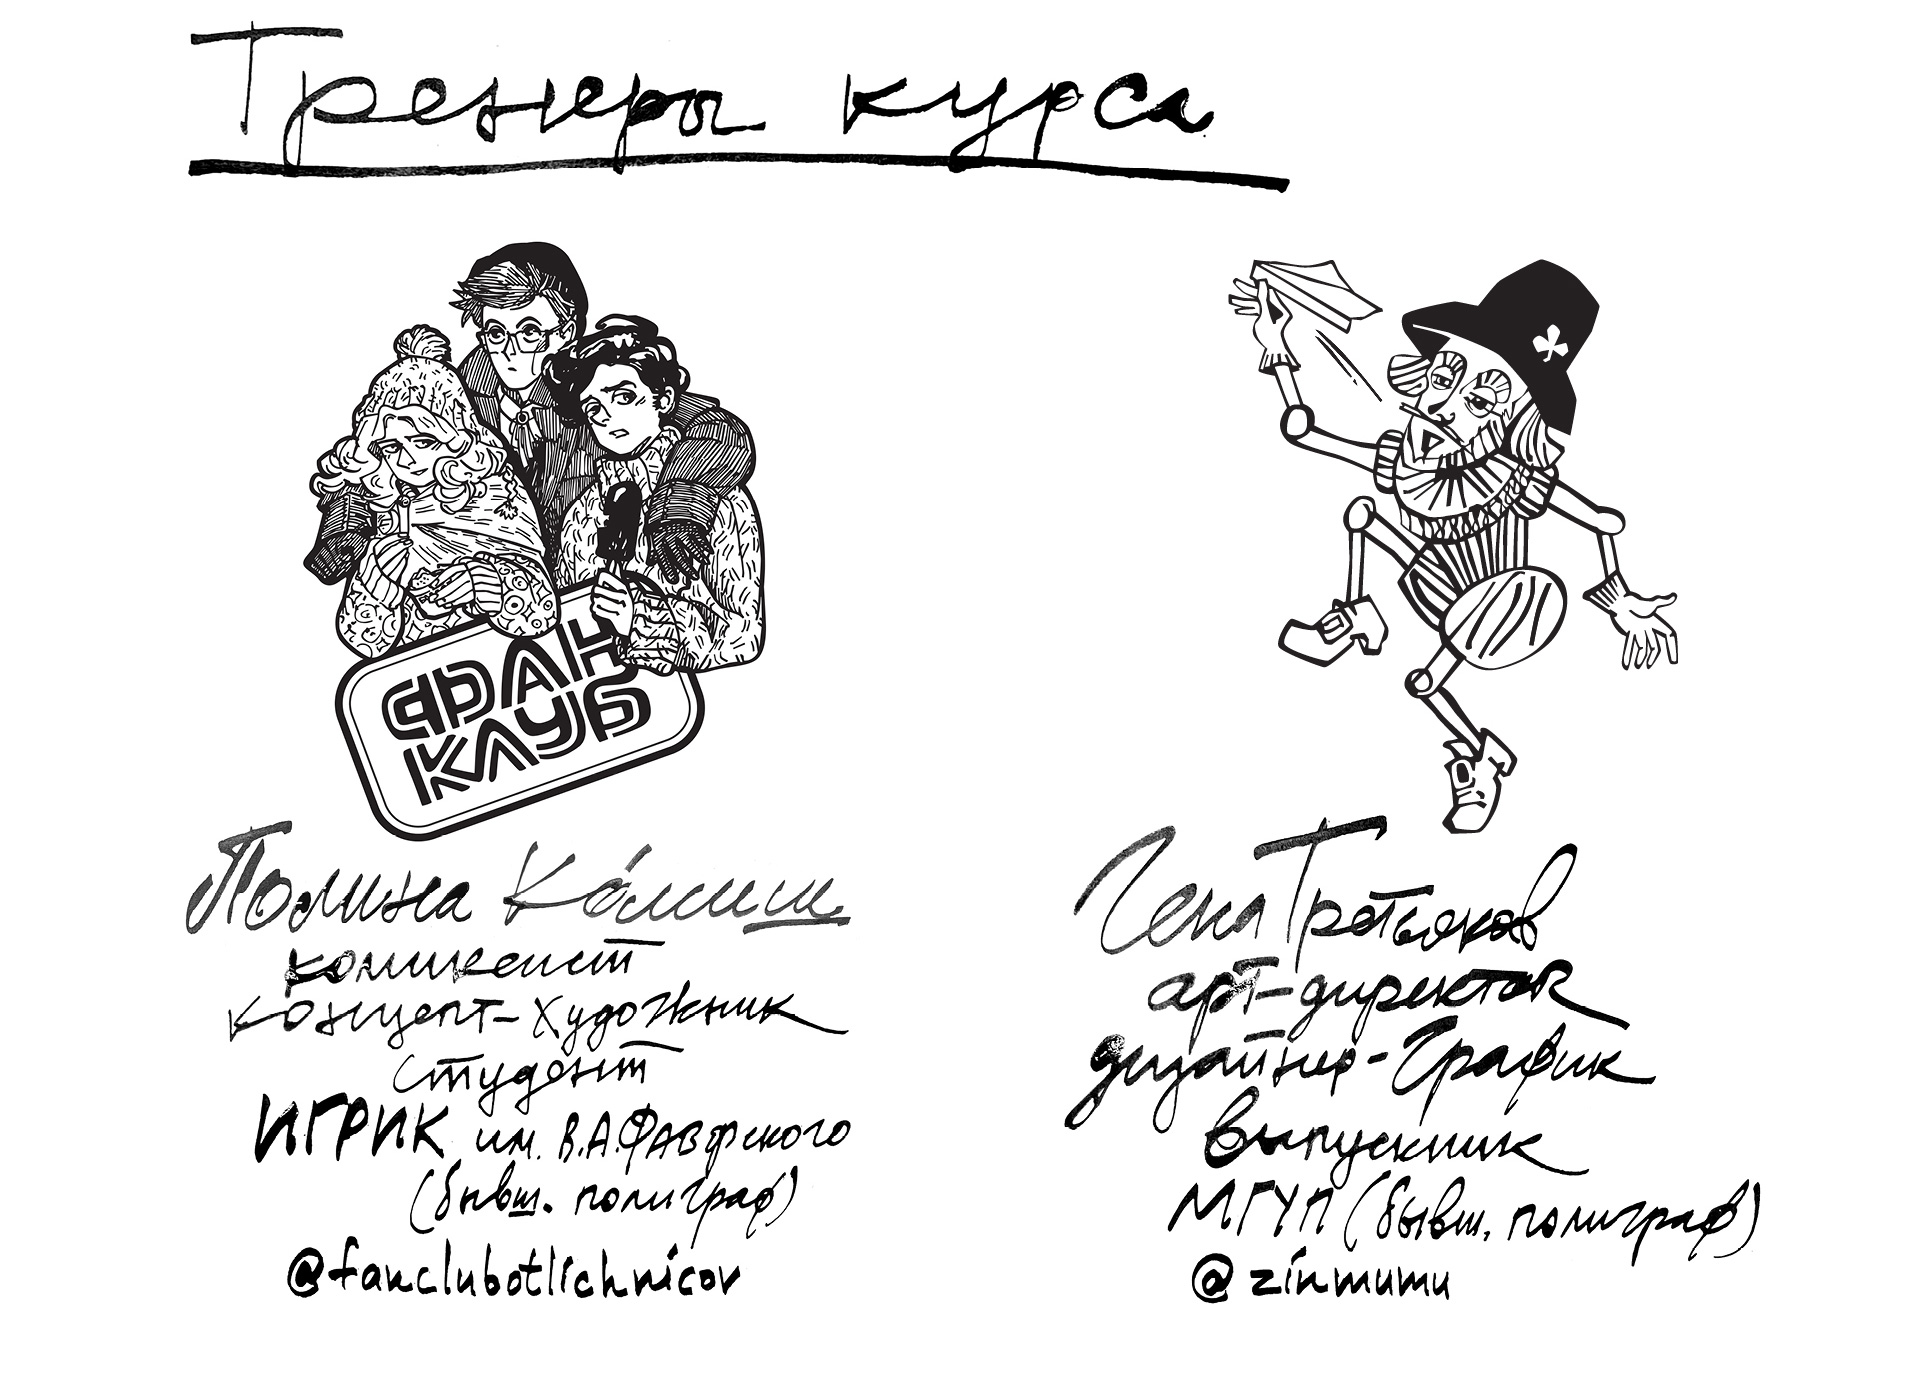 Тренеры курса
ФАН
КЛУБ
Полина Ко́миш
комиксист
концепт-художник
студент
ИГРИК им. В.А.Фаворского
(бывш. полиграф)
@fanclubotlichnicov
Гена Третьяков
арт-директор
дизайнер-график
выпускник
МГУП (бывш. полиграф)
@zinmumu